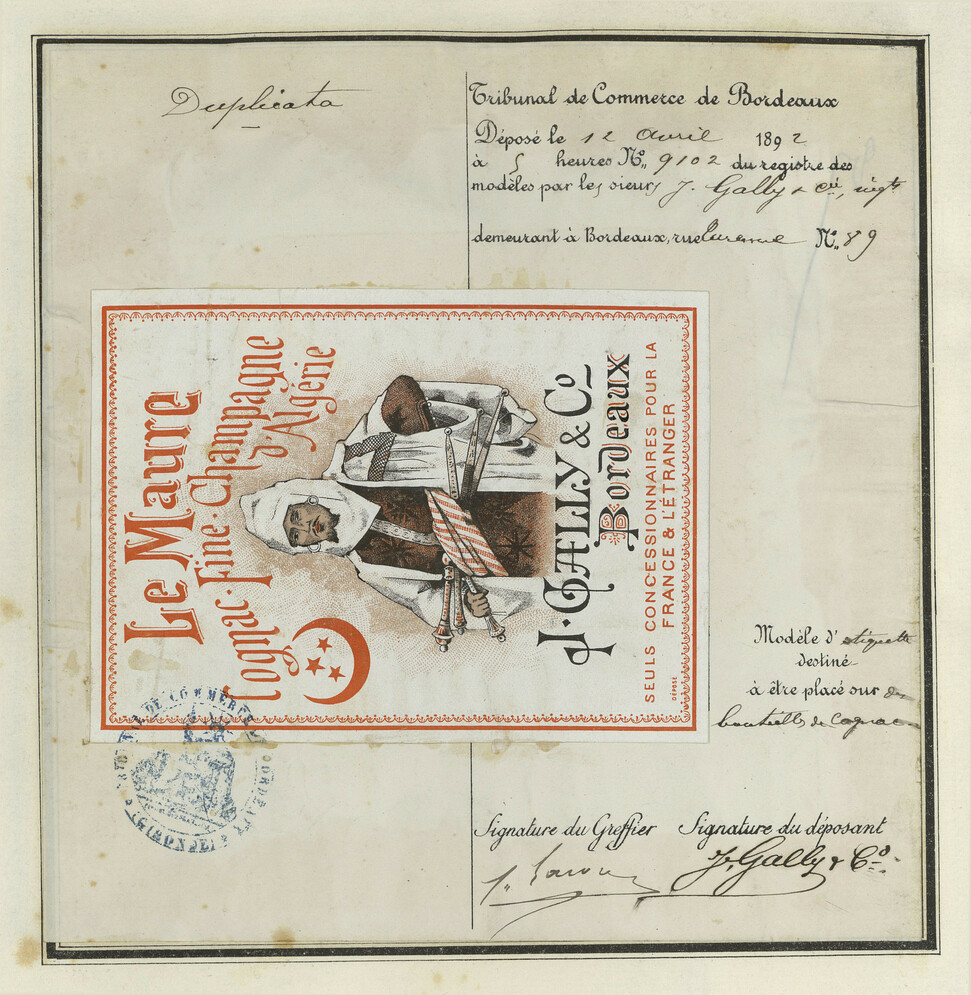 Duplicata
Tribunal de Commerce de Bordeaux
Déposé le 12 avril 1892
à 5 heures No. 9102 du registre des
modèles par les sieurs J. Gally & Cie, négts
demeurant à Bordeaux, rue Turenne No. 89
Le Maure
Cognac · Fine · Champagne
d'Algérie
J. GALLY & Co
Bordeaux
SEULS CONCESSIONNAIRES POUR LA
FRANCE & L'ÉTRANGER
DÉPOSÉ
Modèle d'étiquette
destiné
à être placé sur des
bouteilles de Cognac
TRIBUNAL DE COMMERCE DE BORDEAUX
(GIRONDE)
Signature du Greffier Signature du déposant
J. Gally & Co.